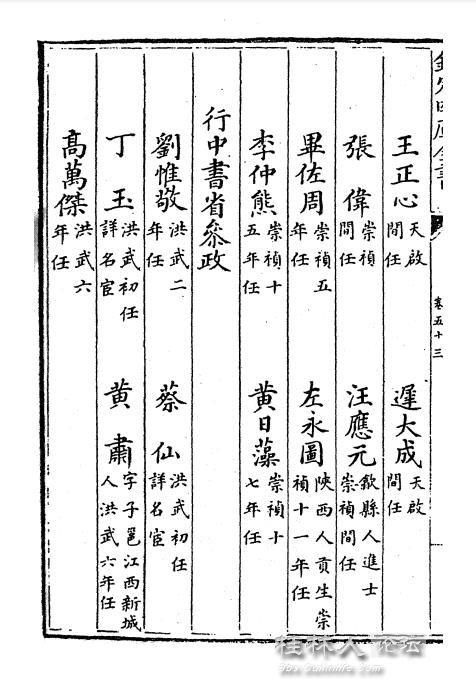 欽定四庫全書
卷五十三
王正心 天啟間任 遲大成 天啟間任
張偉 崇禎間任 汪應元 歙縣人進士崇禎間任
畢佐周 崇禎五年任 左永圖 陝西人貢生崇禎十一年任
李仲熊 崇禎十五年任 黄日藻 崇禎十七年任
行中書省叅政
劉惟敬 洪武二年任 蔡仙 洪武初任詳名宦
丁玉 洪武初任詳名宦 黄肅 字子邕江西新城人洪武六年任
髙萬傑 洪武六年任
桂林人论坛